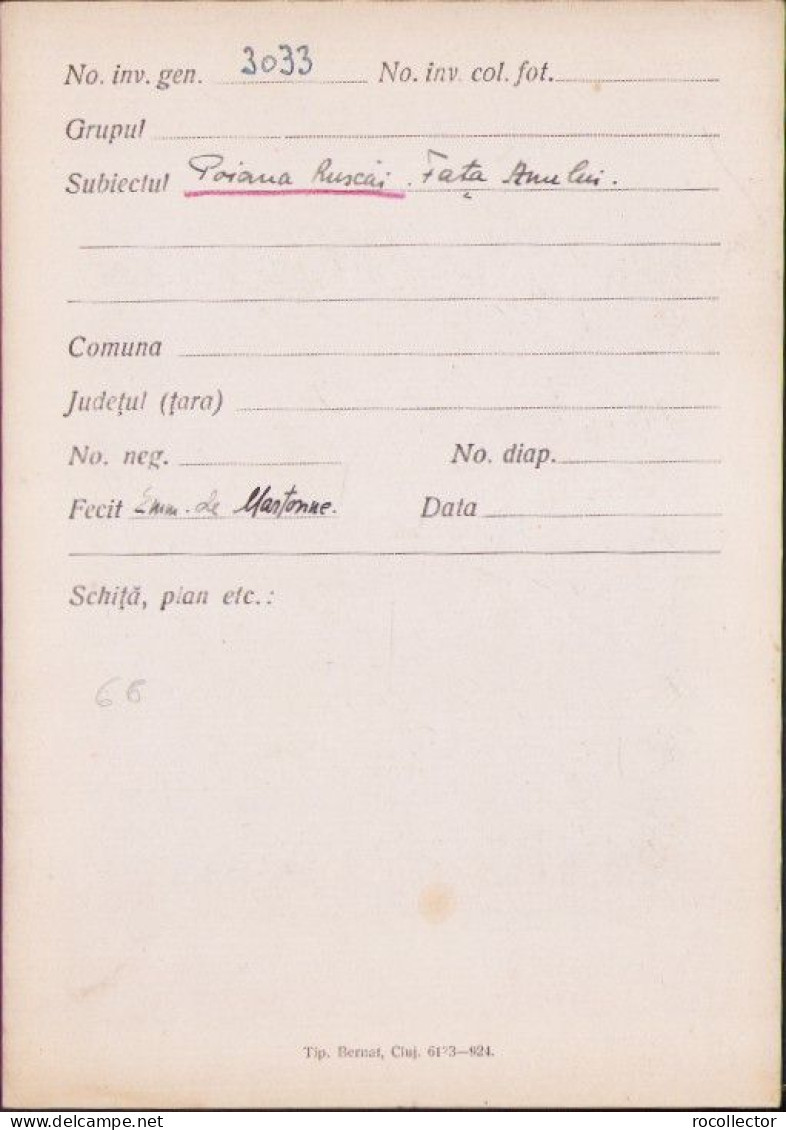 No. inv. gen. 3033 No. inv. col. fot.
Grupul
Subiectul Poiana Ruscăi. Fața
Comuna
Județul (țara)
No. neg. No. diap.
Fecit Emm. de Martonne. Data
Schiță, plan etc.:
66
Tip. Bernat, Cluj.
delcampe.net rocollector